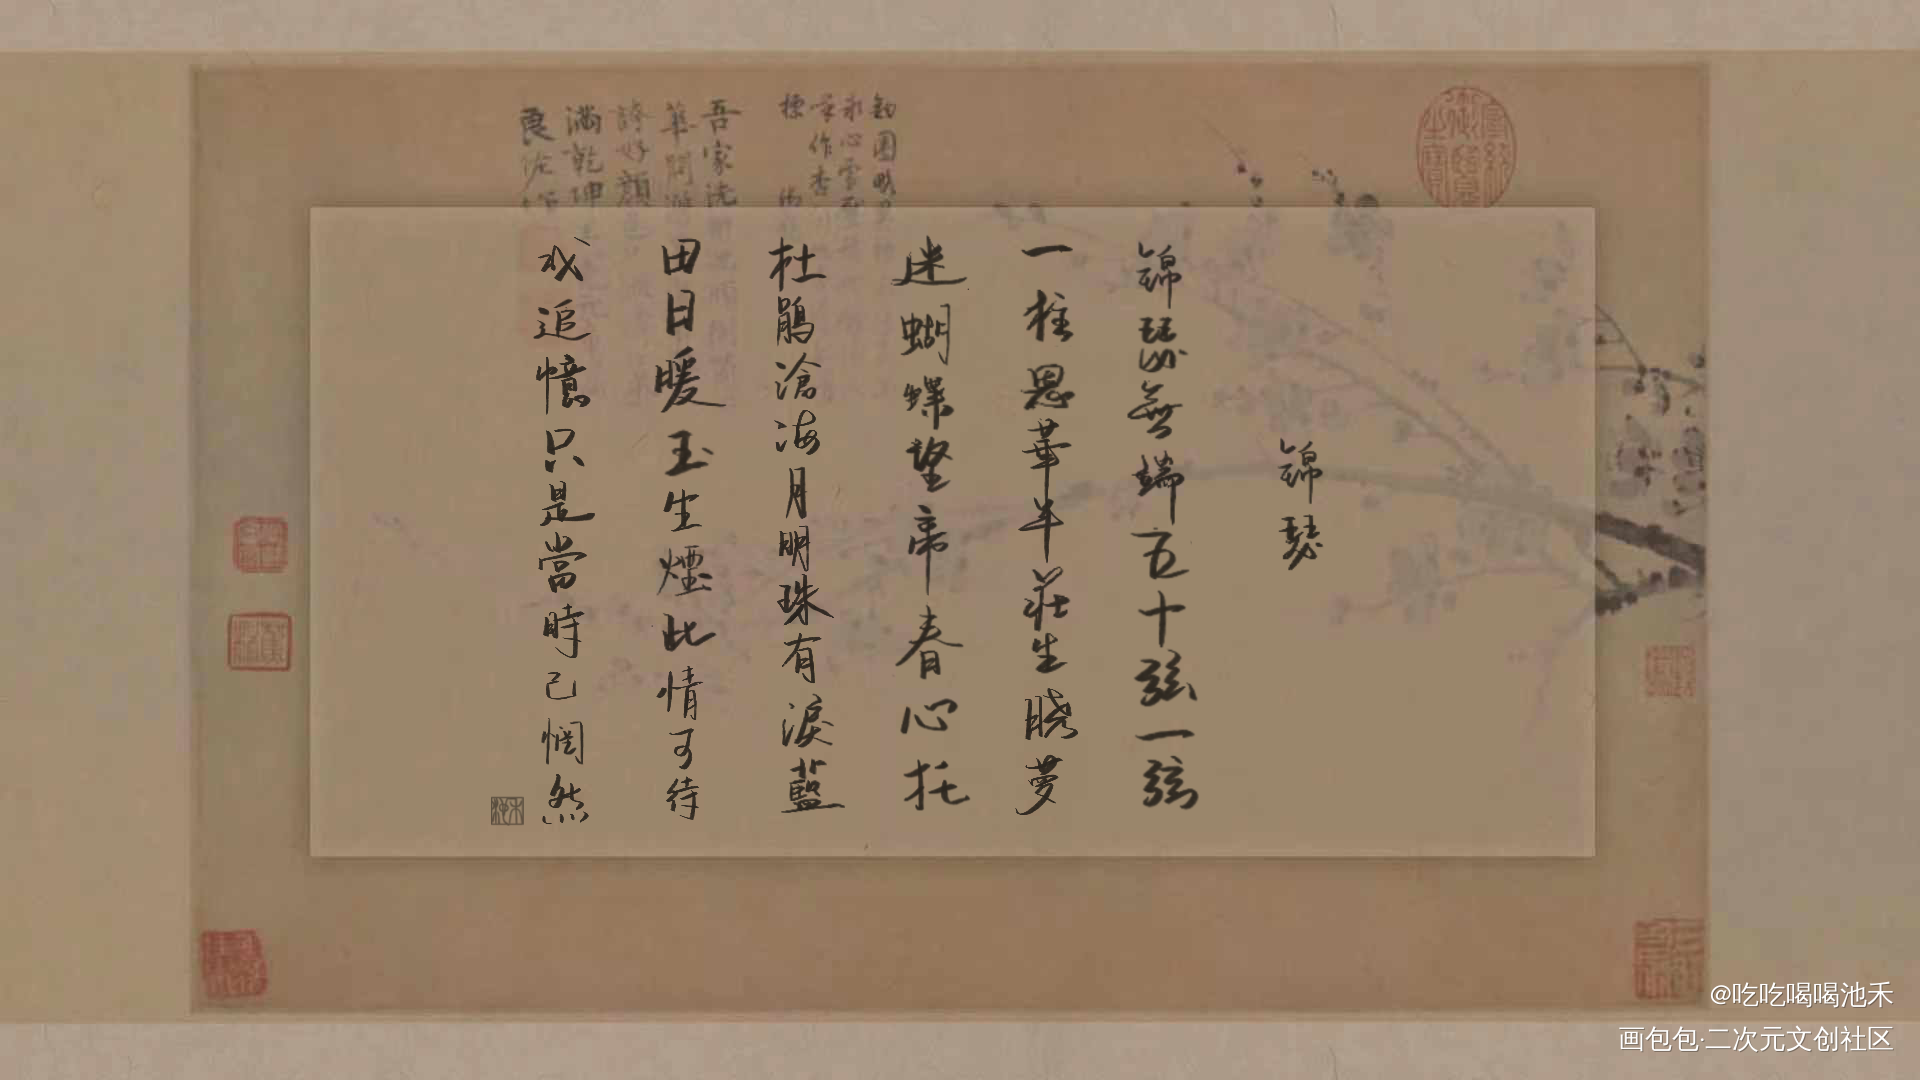 吾家洗
誇好顏
滿乾坤
良佐
錦瑟
錦瑟無端五十弦一弦
一柱思華年莊生曉夢
迷蝴蝶望帝春心托
杜鵑滄海月明珠有淚藍
田日暖玉生煙此情可待
成追憶只是當時已惘然
@吃吃喝喝池禾
画包包·二次元文创社区